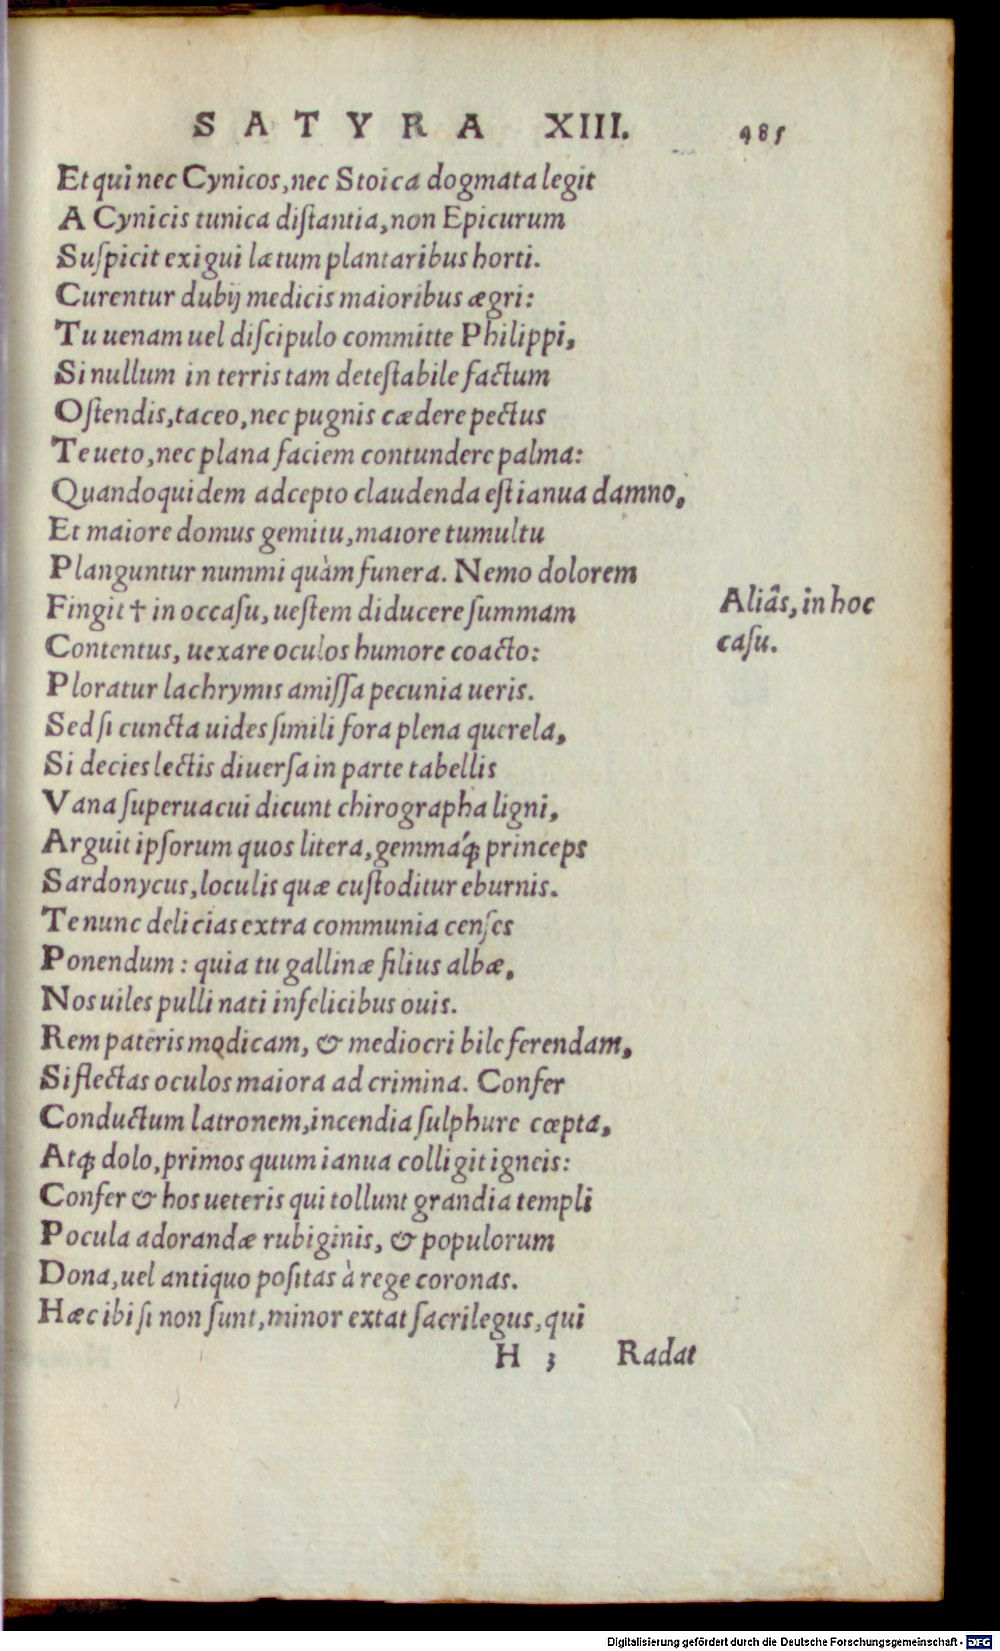 SATYRA XIII. 485
Et qui nec Cynicos, nec Stoica dogmata legit
A Cynicis tunica diſtantia, non Epicurum
Suſpicit exigui lætum plantaribus horti.
Curentur dubij medicis maioribus ægri:
Tu uenam uel diſcipulo committe Philippi,
Si nullum in terris tam deteſtabile factum
Oſtendis, taceo, nec pugnis cædere pectus
Te ueto, nec plana faciem contundere palma:
Quandoquidem adcepto claudenda eſt ianua damno,
Et maiore domus gemitu, maiore tumultu
Planguntur nummi quàm funera. Nemo dolorem
Fingit † in occaſu, ueſtem diducere ſummam
Contentus, uexare oculos humore coacto:
Ploratur lachrymis amiſſa pecunia ueris.
Sed ſi cuncta uides ſimili fora plena querela,
Si decies lectis diuerſa in parte tabellis
Vana ſuperuacui dicunt chirographa ligni,
Arguit ipſorum quos litera, gemmaq́; princeps
Sardonycus, loculis quæ cuſtoditur eburnis.
Te nunc delicias extra communia cenſes
Ponendum: quia tu gallinæ filius albæ,
Nos uiles pulli nati infelicibus ouis.
Rem pateris modicam, & mediocri bile ferendam,
Si flectas oculos maiora ad crimina. Confer
Conductum latronem, incendia ſulphure cœpta,
Atq; dolo, primos quum ianua colligit igneis:
Confer & hos ueteris qui tollunt grandia templi
Pocula adorandæ rubiginis, & populorum
Dona, uel antiquo poſitas à rege coronas.
Hæc ibi ſi non ſunt, minor extat ſacrilegus, qui
H 3 Radat
Aliâs, in hoc
caſu.
Digitalisierung gefördert durch die Deutsche Forschungsgemeinschaft - DFG